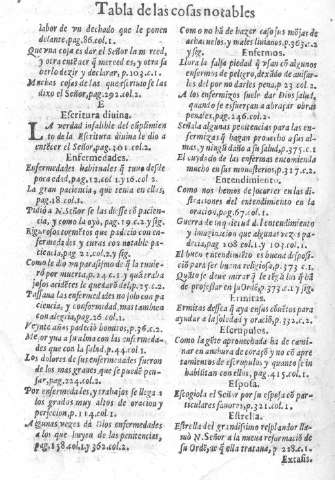 Tabla de las cosas notables
labor de vn dechado que le ponen
delante, pag.86.col.1.
Que vna cosa es dar el Señor la merced,
y otra entēder q̄ merced es, y otra sa
berlo dezir y declarar, p.103.c.1.
Muchas cosas de las que escriuio se las
dixo el Señor, pag.292.col.2.
E
Escritura diuina.
LA verdad infalible del cũplimien
to de la Escritura diuina le dio a
entēder el Señor, pag.401.col.2.
Enfermedades.
Enfermedades habituales q̄ tuuo desde
poca edad, pag.12.col.1.y 16.col 2.
La gran paciencia, que tenia en ellas,
pag.18.col.1.
Pidiōla N.Señor se las diesse cō pacien-
cia, y como la oyo, pag.19.c.2.y sig.
Rigurosos tormētos que padecio con en-
fermedades y curas con notable pa-
ciencia, pag 21.col.2.y sig.
Como le dio vn parasismo de q̄ la tuuie-
rō por muerta, p.24.c.1. y quā graues
dolores accidētes le quedarō del, p.25.c.2.
Passaua las enfermedades no solo con pa
ciencia, y conformidad, mas tambien
con alegria, pag.26.col.1.
Veynte años padecio bomitos, p.36.c.2.
Mejor yua a su alma con las enfermeda-
des que con la salud, p.44.col.1.
Los dolores de sus enfermedades fueron
de los mas graues que se puedē pen-
sar, pag.224.col.2.
Por enfermedades, y trabajos se llega a
los grados muy altos de oracion y
perfecion, p.114.col.1.
Algunas vezes dā Dios enfermedades
a los que huyen de las penitencias,
pag.158.col.1.y 362.col.2.
Como no hā de hazer caso sus mōjas de
achaquelos, y males liuianos, p.363.c.2
y sig.
Enfermos.
Llora la falsa piedad q̄ vsan cō algunos
enfermos de peligro, dexādo de auisar-
les del por no darles pena, p 23 col.2.
A los enfermos suele dar Dios salud,
quando se esfuerçan a abraçar obras
penales, pag.246.col.2.
Señala algunas penitencias para las en-
fermas, q̄ hagan prouecho a sus al-
mas, y ningū daño a su salud, p.375.c.1.
El cuydado de las enfermas encomienda
mucho en sus monasterios, p.317.c.2.
Entendimiento.
Como nos hemos de socorrer en las dis-
traciones del entendimiento en la
oracion, pag.67.col.1.
Guerra de inquietud del entendimiento
y imaginacion que algunas vezes pa-
decia, pag 108 col.1.y 103.col.1.
El buen entendimiēto es buena disposi-
ciō para ser buena religiosa, p.373 c.1.
Ermitas.
Ermitas dessea q̄ aya en sus cōuētos para
ayudar a la soledad y oraciō, p.332.c.2.
Escrupulos.
Como la gēte aprouechada ha de cami-
nar en anchura de coraçō y no cō apre
tamientos de escrupulos, y quanto se in
habilitan en ellos pag 415.col.1.
Esposa.
Escogiola el Señor por su esposa cō par-
ticulares fauores, p.321.col.1.
Estrella.
Estrella del grandissimo resplandor lla-
mō N.Señor a la nueua reformacio de
su Ordē, q̄ ella trataua, p 228.c.1.
Extasis.